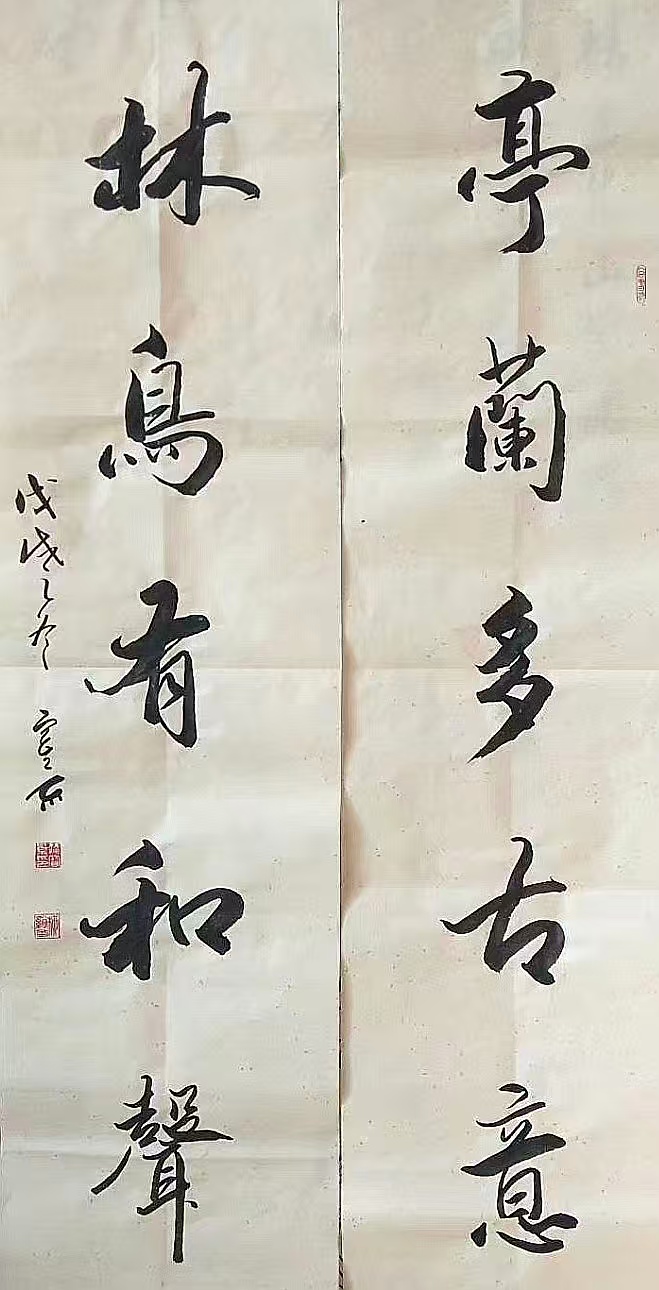 亭蘭多古意
林鳥有和聲
戊戌之冬